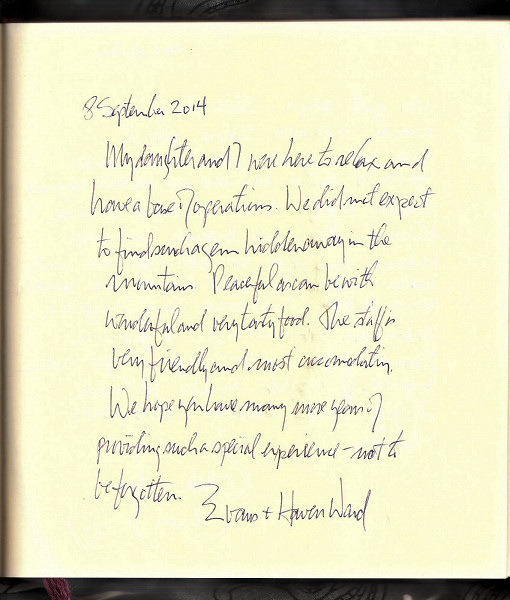 8 September 2014
My daughter and I were here to relax and
have a base of operations. We did not expect
to find such a gem hidden away in the
mountains. Peaceful as can be with
wonderful and very tasty food. The staff is
very friendly and most accomodating.
We hope you have many more years of
providing such a special experience - not to
be forgotten.
Evans + Haven Ward